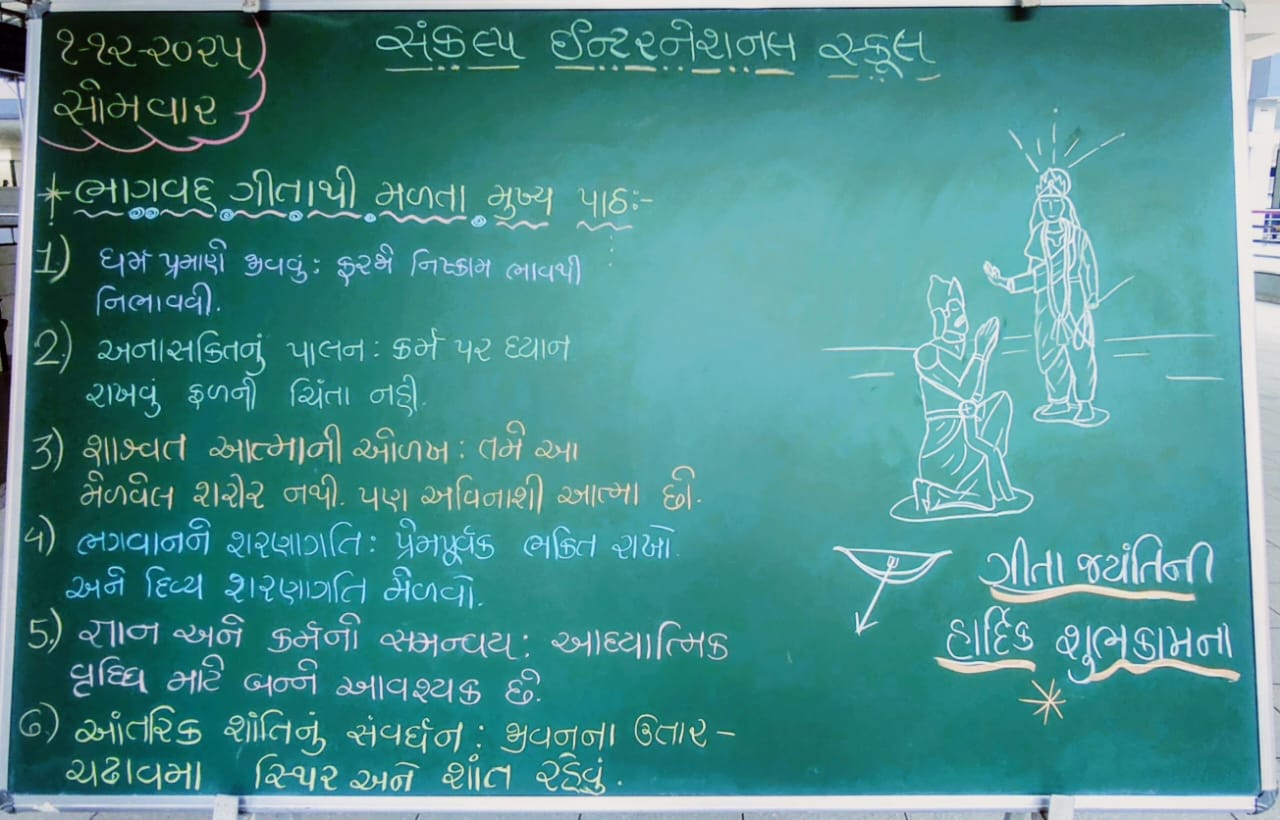 ૧-૧૨-૨૦૨૫
સોમવાર
સંકલ્પ ઈન્ટરનેશનલ સ્કૂલ
* ભાગવદ્ ગીતાથી મળતા મુખ્ય પાઠ:-
1) ધર્મ પ્રમાણે જીવવું: ફરજો નિષ્કામ ભાવથી
નિભાવવી.
2.) અનાસકિતનું પાલન: કર્મ પર ધ્યાન
રાખવું ફળની ચિંતા નહી.
3) શાશ્વત આત્માની ઓળખ: તમે આ
મેળવેલ શરીર નથી. પણ અવિનાશી આત્મા છો.
4) ભગવાનને શરણાગતિ: પ્રેમપૂર્વક ભકિત રાખો.
અને દિવ્ય શરણાગતિ મેળવો.
5.) જ્ઞાન અને કર્મનો સમન્વય: આધ્યાત્મિક
વૃધ્ધિ માટે બન્ને આવશ્યક છે.
6.) આંતરિક શાંતિનું સંવર્ધન: જીવનના ઉતાર-
ચઢાવમા સ્થિર અને શાંત રહેવું.
ગીતા જયંતિની
હાર્દિક શુભકામના